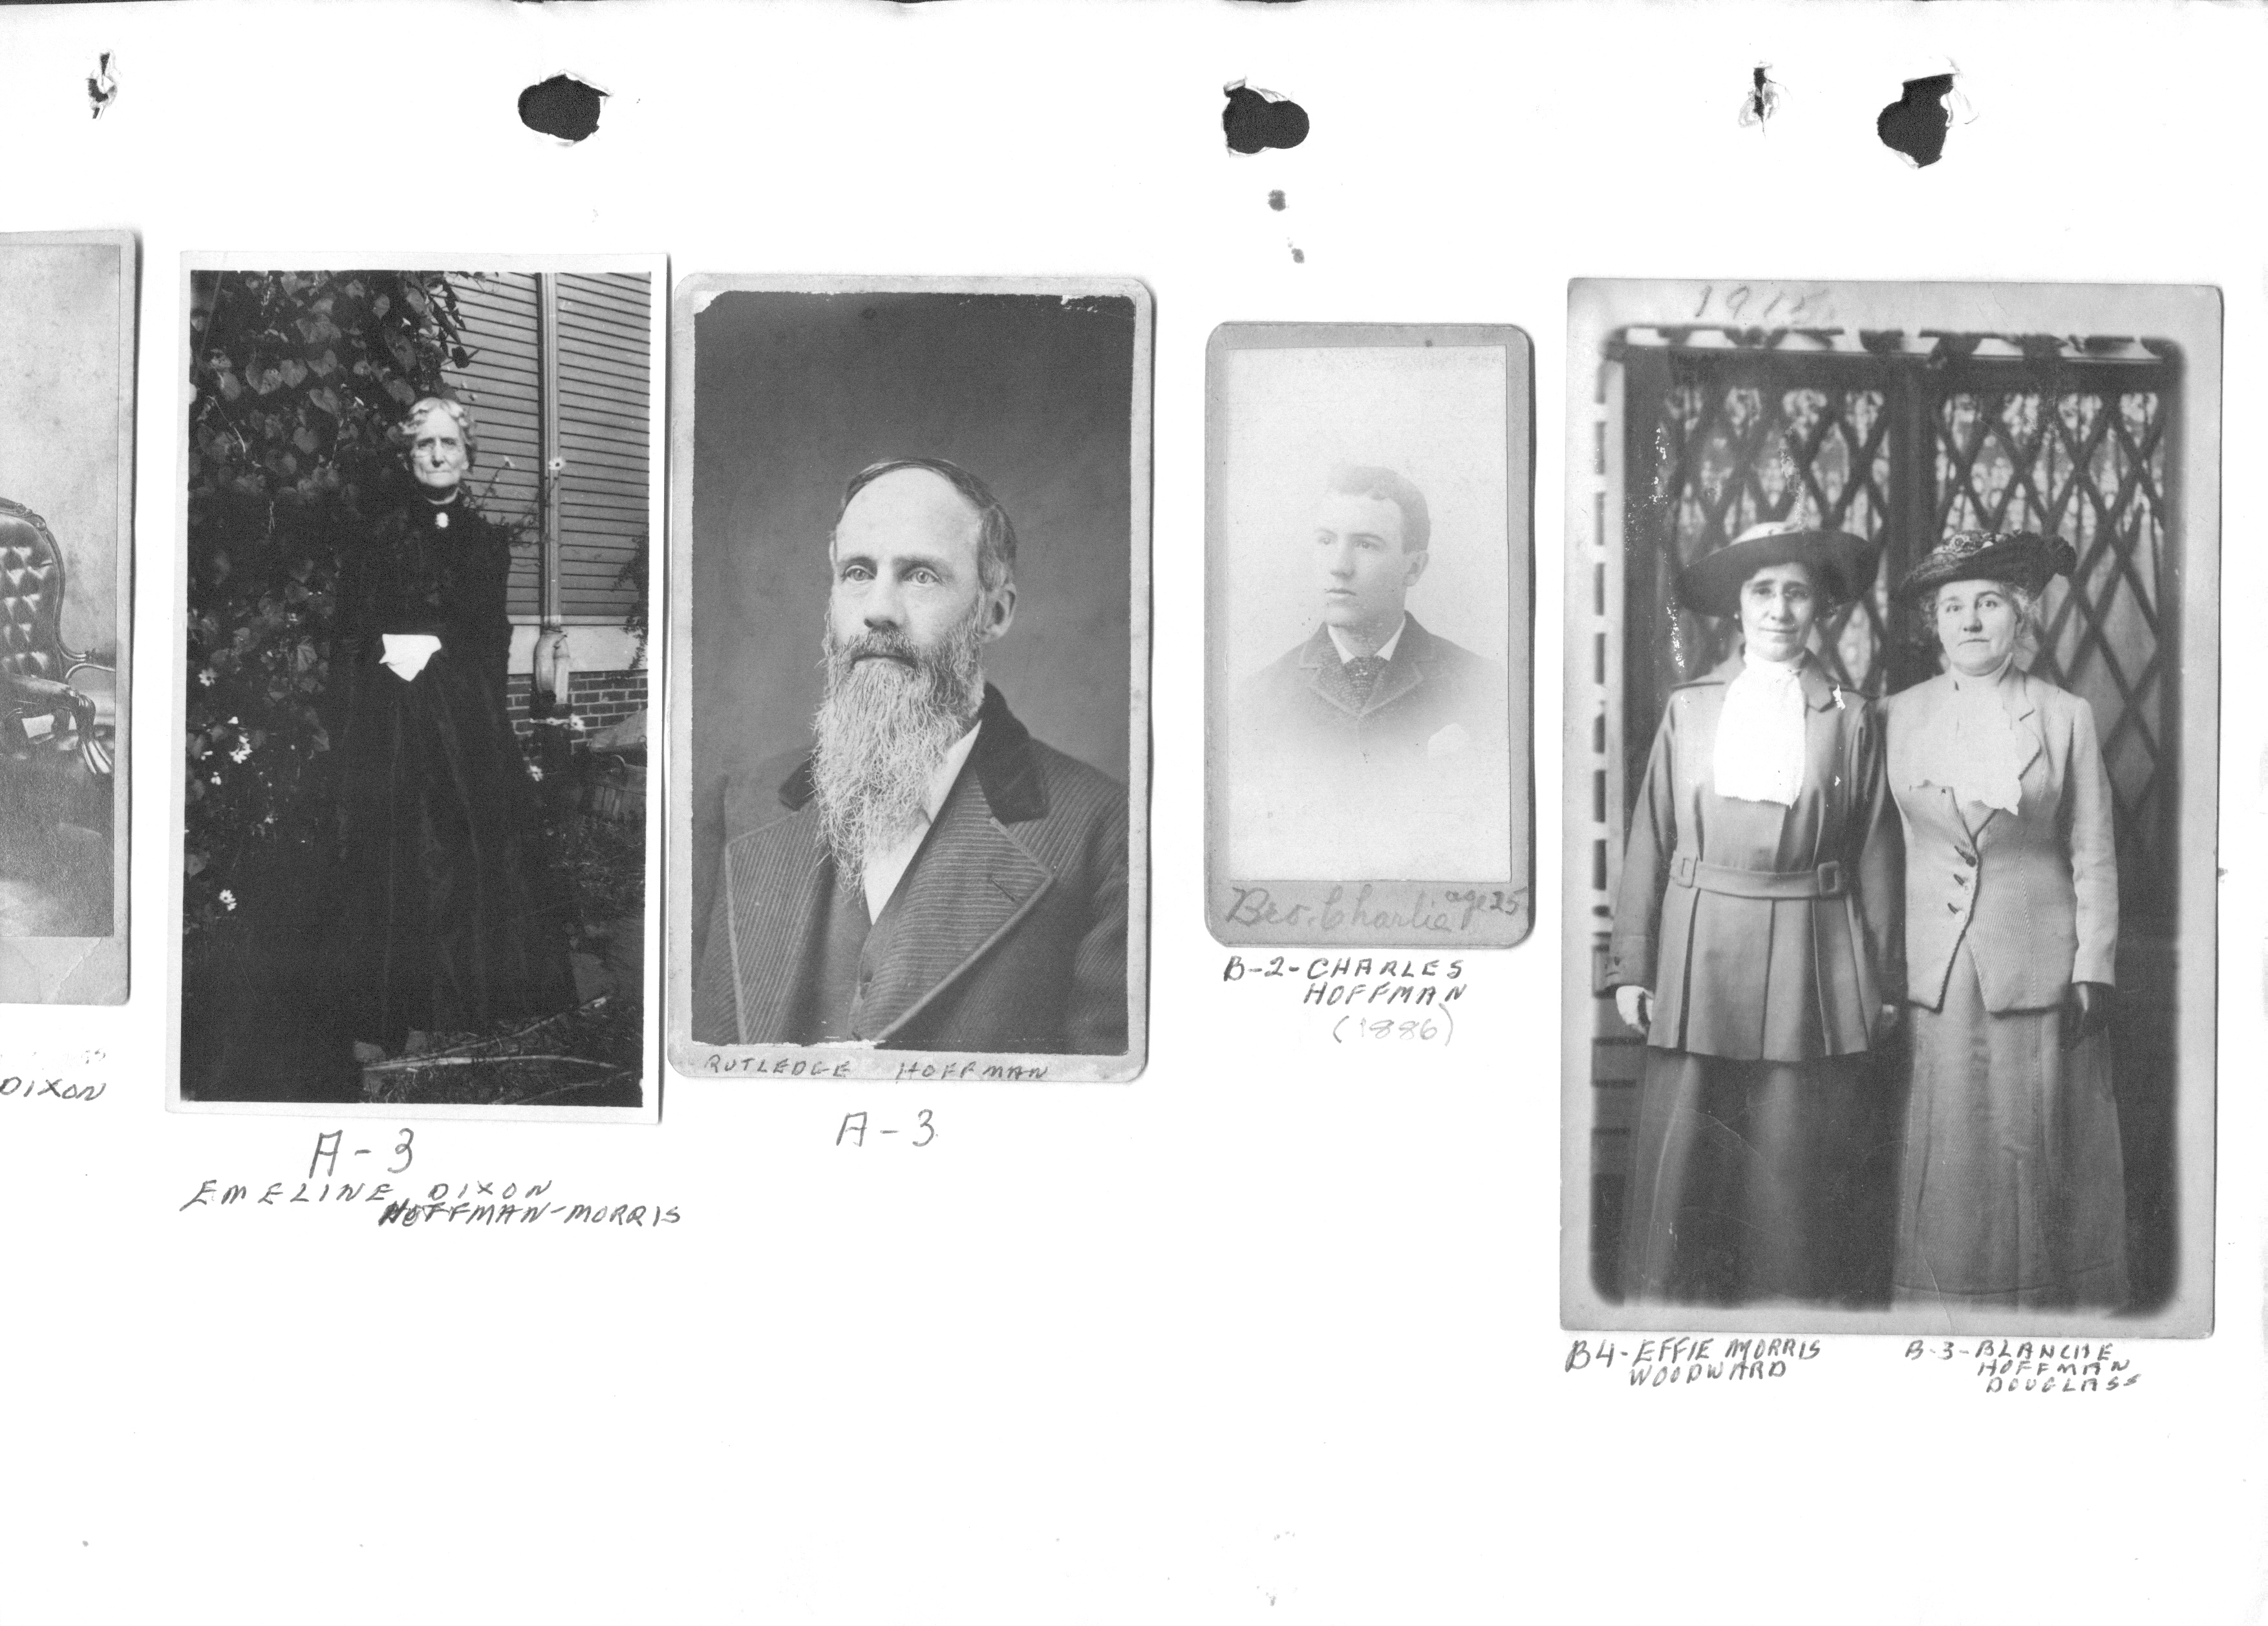 DIXON
A-3
EMELINE DIXON
HOFFMAN-MORRIS
RUTLEDGE HOFFMAN
A-3
Bro. Charlie age 25
B-2-CHARLES
HOFFMAN
(1886)
1915
B4-EFFIE MORRIS
WOODWARD
B-3-BLANCHE
HOFFMAN
DOUGLASS